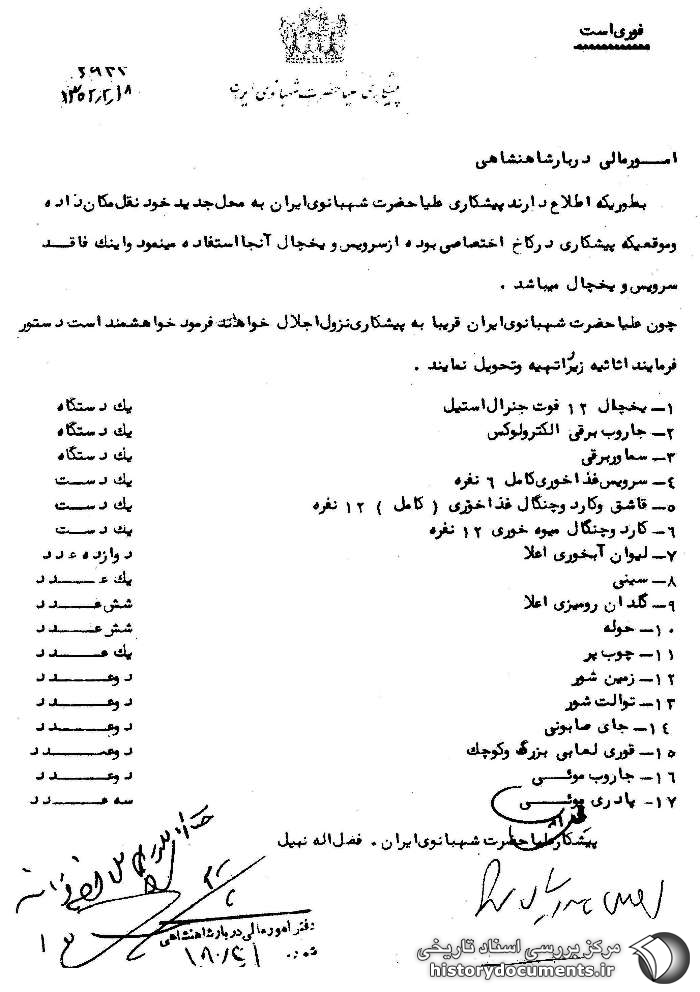 فوری است
۲۹۲۲
۱۳۵۲٫۲٫۱۸
پیشکاری علیاحضرت شهبانوی ایران
امور مالی دربار شاهنشاهی
بطوریکه اطلاع دارند پیشکاری علیاحضرت شهبانوی ایران به محل جدید خود نقل مکان داده
وموقعیکه پیشکاری در کاخ اختصاصی بوده از سرویس و یخچال آنجا استفاده مینمود و اینک فاقد
سرویس و یخچال میباشد .
چون علیاحضرت شهبانوی ایران قریبا به پیشکاری نزول اجلال خواهند فرمود خواهشمند است دستور
فرمایند اثاثیه زیر را تهیه وتحویل نمایند .
۱- یخچال ۱۲ فوت جنرال استیل یک دستگاه
۲- جاروب برقی الکترولوکس یک دستگاه
۳- سماور برقی یک دستگاه
۴- سرویس غذاخوری کامل ۶ نفره یک دست
۵- قاشق وکارد وچنگال غذاخوری ( کامل ) ۱۲ نفره یک دست
۶- کارد وچنگال میوه خوری ۱۲ نفره یک دست
۷- لیوان آبخوری اعلا دوازده عدد
۸- سینی یک عدد
۹- گلدان رومیزی اعلا شش عدد
۱۰- حوله شش عدد
۱۱- چوب پر یک عدد
۱۲- زمین شور دو عدد
۱۳- توالت شور دو عدد
۱۴- جای صابونی دو عدد
۱۵- قوری لعابی بزرگ وکوچک دو عدد
۱۶- جاروب موئی دو عدد
۱۷- پادری موئی سه عدد
پیشکار علیاحضرت شهبانوی ایران . فضل اله نبیل
دفتر امور مالی دربار شاهنشاهی
مرکز بررسی اسناد تاریخی
historydocuments.ir